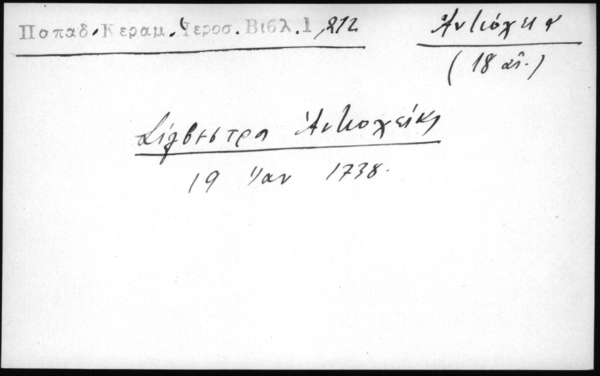 Παπαδ. Κεραμ. Ἱεροσ. Βιβλ. 1, 212
Ἀντιόχεια
(18 αἰ.)
Σίλβεστρος Ἀντιοχείας
19 Ἰαν 1738.